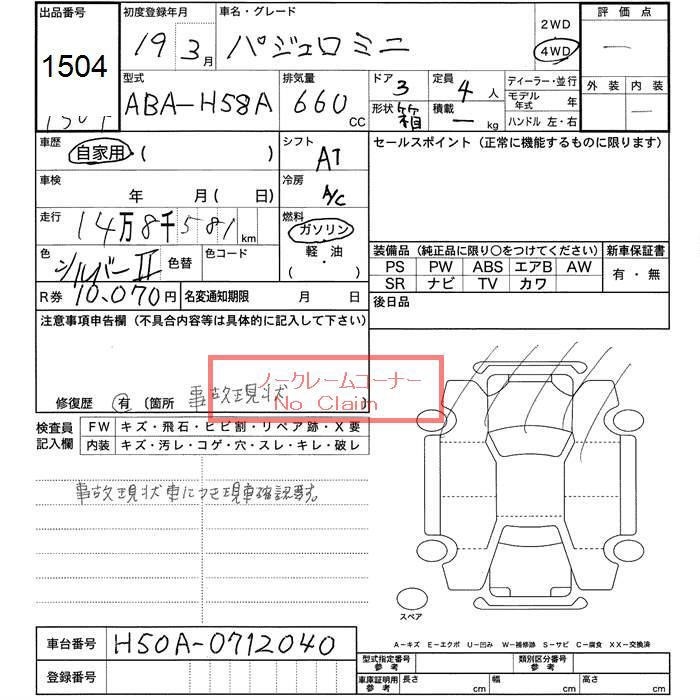 出品番号 初度登録年月 車名・グレード 2WD 評価点
1504 19 3月 パジェロミニ 4WD —
型式 排気量 ドア 定員 ディーラー・並行 外装 内装
ABA-H58A 660 CC 3 4 人 モデル年式 年 —
形状 箱 積載 — kg ハンドル 左・右
車歴 自家用 ( ) シフト AT セールスポイント (正常に機能するものに限ります)
車検 年 月 ( 日) 冷房 A/C
走行 14万8千581 km 燃料 ガソリン
色 シルバーⅡ 色替 色コード 軽・油 ( ・ )
装備品 (純正品に限り〇をつけてください) 新車保証書
PS PW ABS エアB AW 有・無
SR ナビ TV カワ
R券 10,070円 名変通知期限 月 日 後日品
注意事項申告欄 (不具合内容等は具体的に記入して下さい)
ノークレームコーナー
No Claim
修復歴 有 (箇所 事故現状
検査員記入欄 FW キズ・飛石・ヒビ割・リペア跡・X要
内装 キズ・汚レ・コゲ・穴・スレ・キレ・破レ
事故現状車につき現車確認要す。
スペア
A-キズ E-エクボ U-凹み W-補修跡 S-サビ C-腐食 XX-交換済
車台番号 H50A-0712040
登録番号
型式指定番号 参考 類別区分番号 参考
車庫証明用 参考 長さ cm 幅 cm 高さ cm